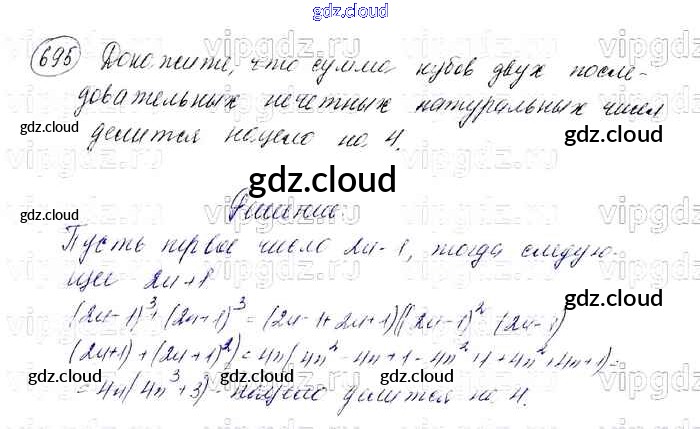 gdz.cloud
695 Докажите, что сумма кубов двух после-
довательных нечетных натуральных чисел
gdz.cloud gdz.cloud
делится нацело на 4.
gdz.cloud
Решение.
Пусть первое число 2n-1, тогда следую-
щее 2n+1
gdz.cloud gdz.cloud
(2n-1)³+(2n+1)³=(2n-1+2n+1)((2n-1)²-(2n-1)
(2n+1)+(2n+1)²)=4n(4n²-4n+1-4n²+1+4n²+4n+1)=
gdz.cloud gdz.cloud gdz.cloud
=4n(4n³+3)-нацело делится на 4.
gdz.cloud